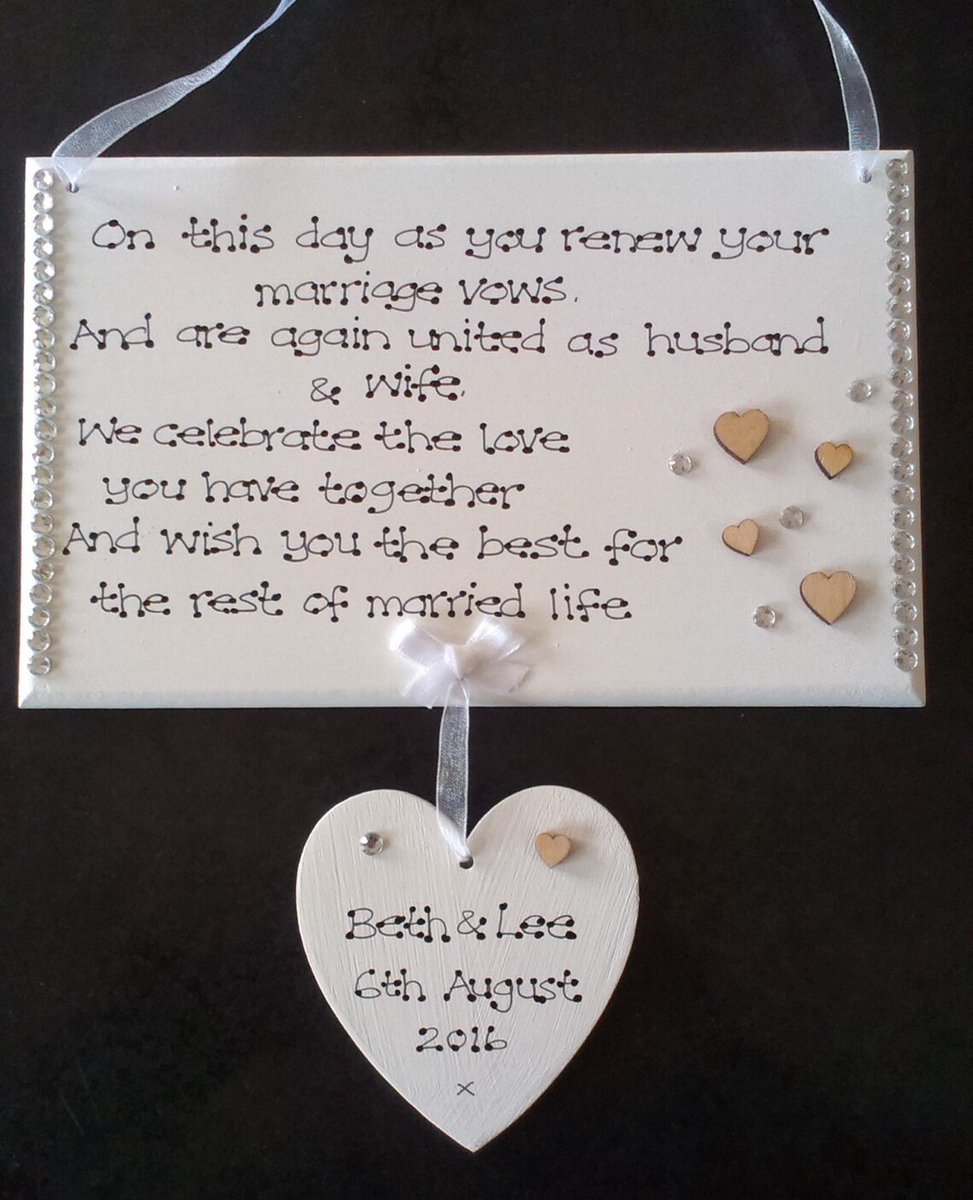 On this day as you renew your
marriage vows.
And are again united as husband
& wife.
We celebrate the love
you have together
And wish you the best for
the rest of married life
Beth & Lee
6th August
2016
x